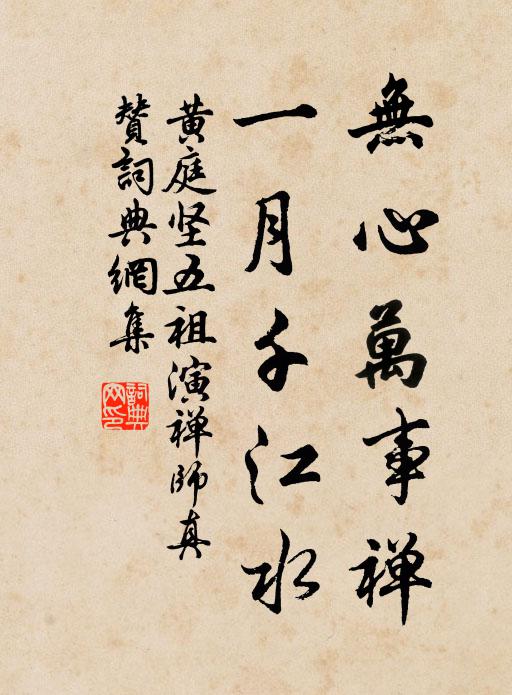 無心萬事禅
一月千江水
黄庭坚五祖演禅师真
賛詞典網集
詞典网印